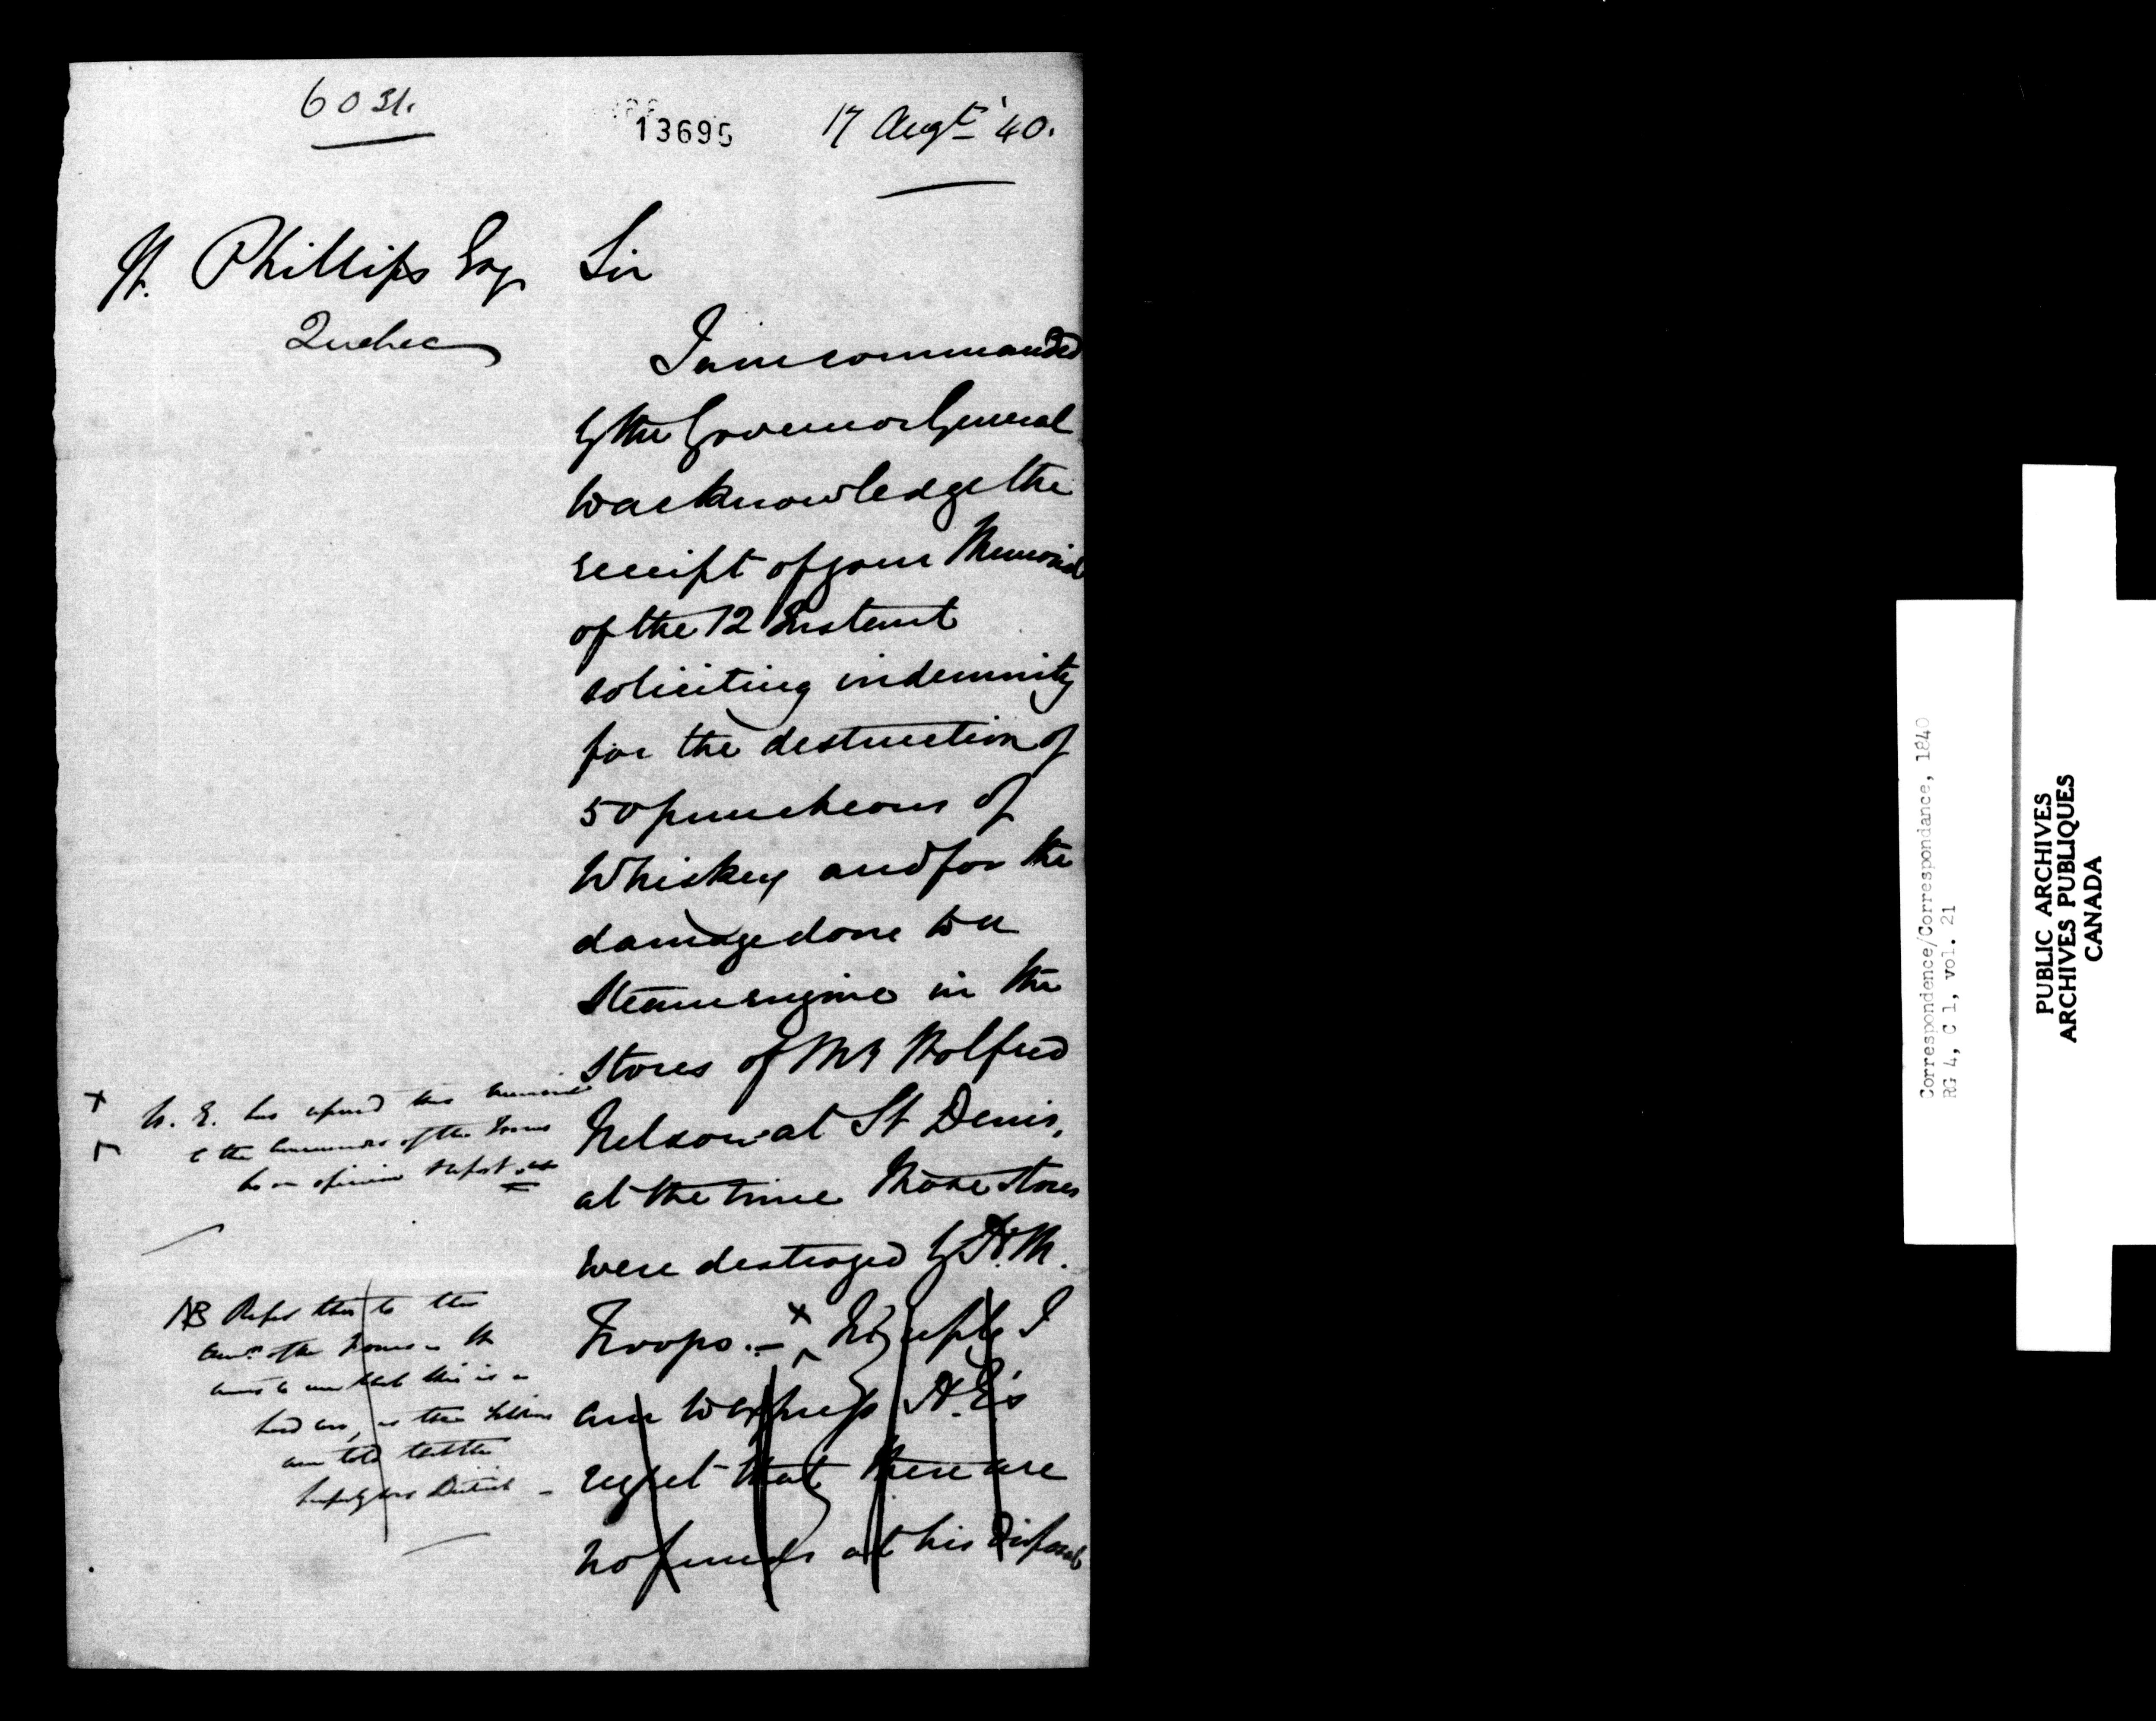 6031.
13695
17 Augt '40.
H. Phillips Esq
Quebec
Sir
I am commanded
by the Governor General
to acknowledge the
receipt of your Memorial
of the 12 Instant
soliciting indemnity
for the destruction of
50 puncheons of
Whiskey and for the
damage done to a
steam engine in the
stores of Mr Wolfred
Nelson at St Denis,
at the time those stores
were destroyed by H. M.
Troops. — In reply I
am to express H. E's
regret that there are
no funds at his disposal
H. E. has referred this Memorial
to the Commander of the Forces
for an opinion &
NB Refer this to the
of the Forces
that this is a
hard case, as the
are told that the
property was
Correspondence/Correspondance, 1840
RG 4, C 1, vol. 21
PUBLIC ARCHIVES
ARCHIVES PUBLIQUES
CANADA